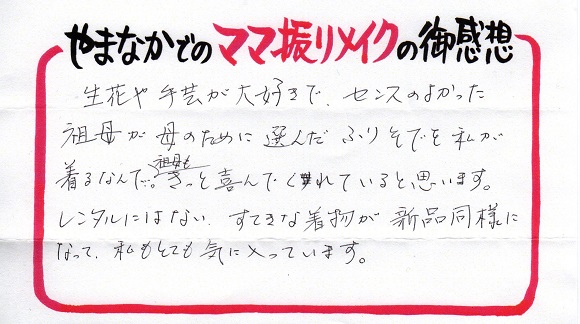 やまなかでのママ振リメイクの御感想
生花や手芸が大好きで、センスのよかった
祖母が母のために選んだふりそでを私が
着るなんて。祖母もきっと喜んでくれていると思います。
レンタルにはない、すてきな着物が新品同様に
なって、私もとても気に入っています。